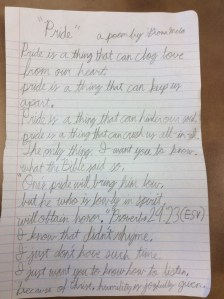 "Pride"
a poem by
Pride is a thing that can clog love
from our heart.
pride is a thing that can keep us
apart.
Pride is a thing that can hinder our
pride is a thing that can crush us all in all.
The only thing I want you to know.
what the Bible said so.
"One's pride will bring him low,
but he who is lowly in spirit
will obtain honor." Proverbs 29:23 (ESV)
I know that didn't rhyme.
I just don't have such time.
I just want you to know how to listen,
because of Christ, humility is joyfully given.